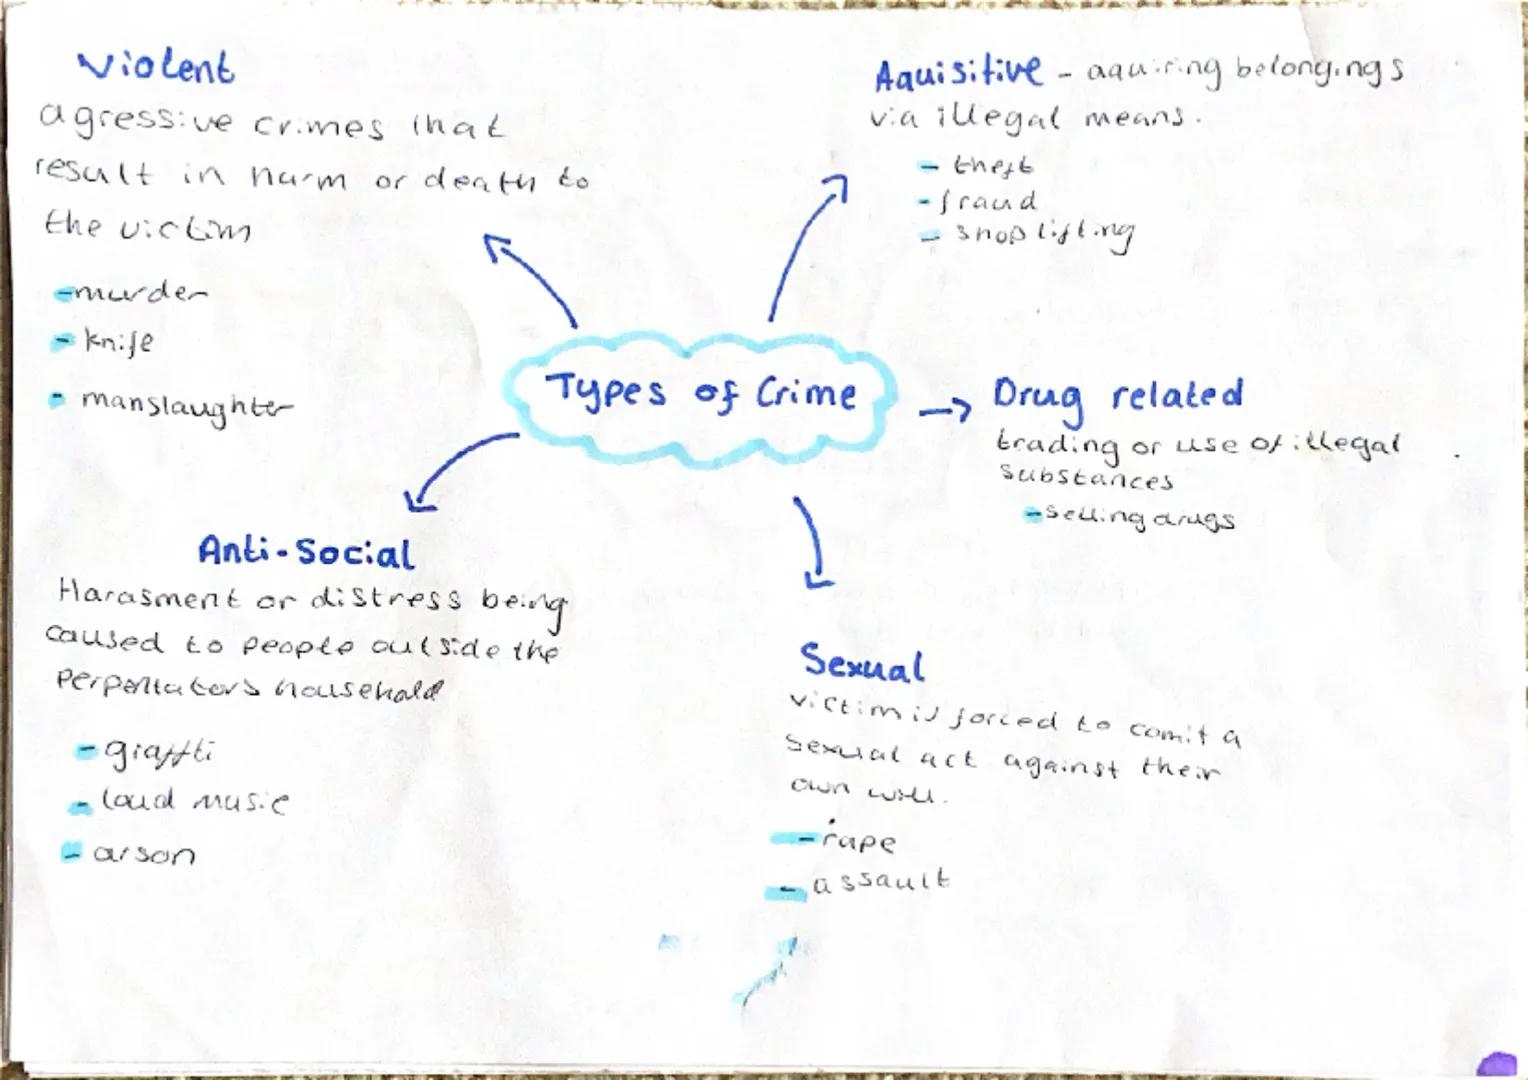 Violent
agressive crimes that
result in harm or death to
the victim
- murder
- knife
- manslaughter
Aquisitive - aquiring belongings
via illegal means.
- theft
- fraud
- shoplifting
Types of Crime
Drug related
trading or use of illegal
substances
- selling drugs
Anti-Social
Harasment or distress being
caused to people outside the
household
- graffti
- loud music
- arson
Sexual
victim is forced to comit a
sexual act against their
own will.
- rape
- assault